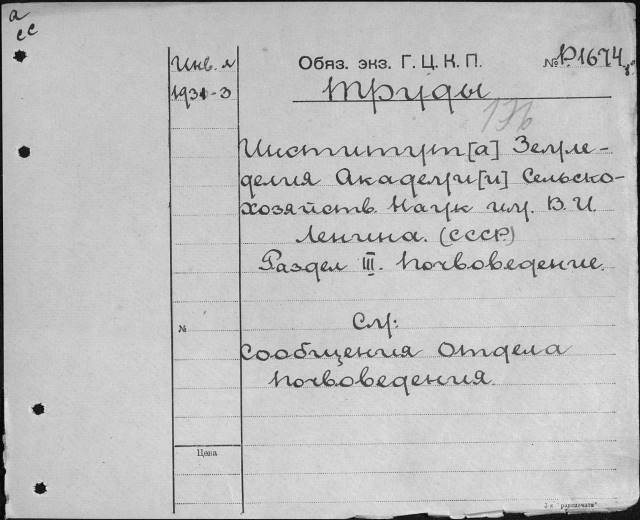 а
сс
Инв. л
1931-3
Обяз. экз. Г. Ц. К. П.
№ Р1674
Труды
176
Институт[а] Земле-
делия Академи[и] Сельско-
хозяйств. Наук им. В. И.
Ленина. (СССР)
Раздел III. Почвоведение.
№
См:
Сообщения Отдела
Почвоведения.
Цена